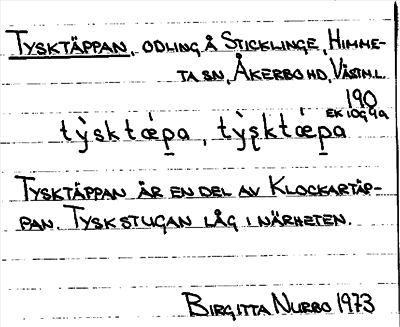 TYSKTÄPPAN, ODLING Å STICKLINGE, HIMME-
TA SN, ÅKERBO HD, VÄSTM.L.
190
EK 10g 9a
tỳsktǽpa, tỳsktǽpa
TYSKTÄPPAN ÄR EN DEL AV KLOCKARTÄP-
PAN. TYSKSTUGAN LÅG I NÄRHETEN.
BIRGITTA NURBO 1973